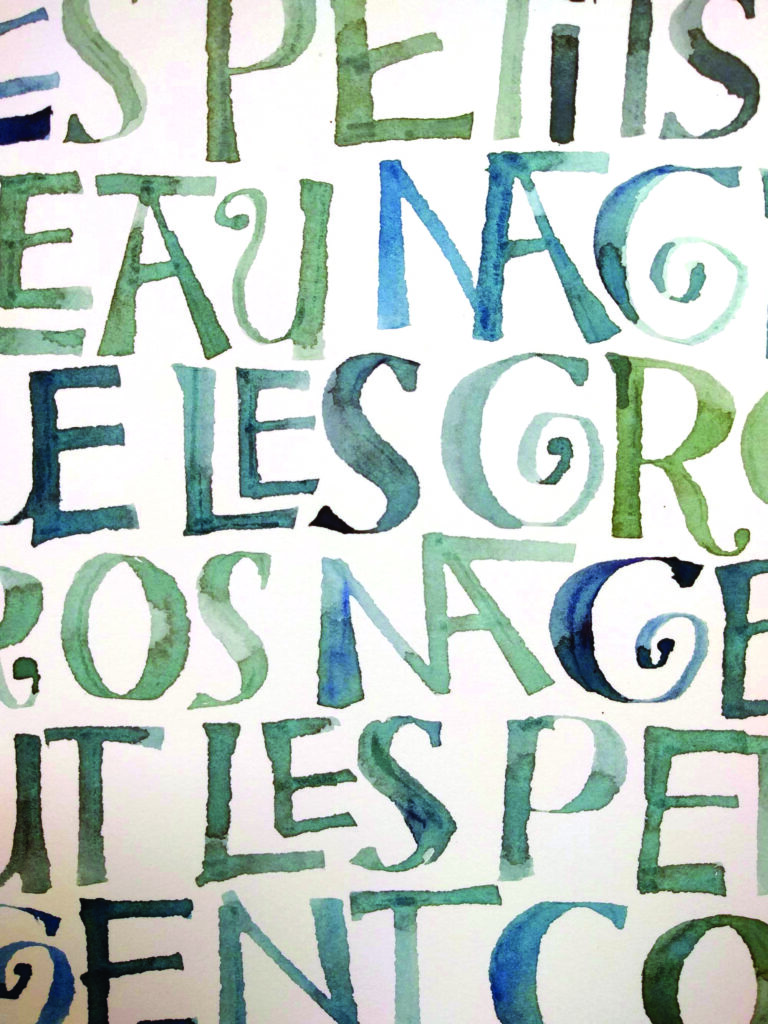 ES PETITS
EAU NAG
E LES GRO
ROS NAGE
UT LES PET
GENT CO